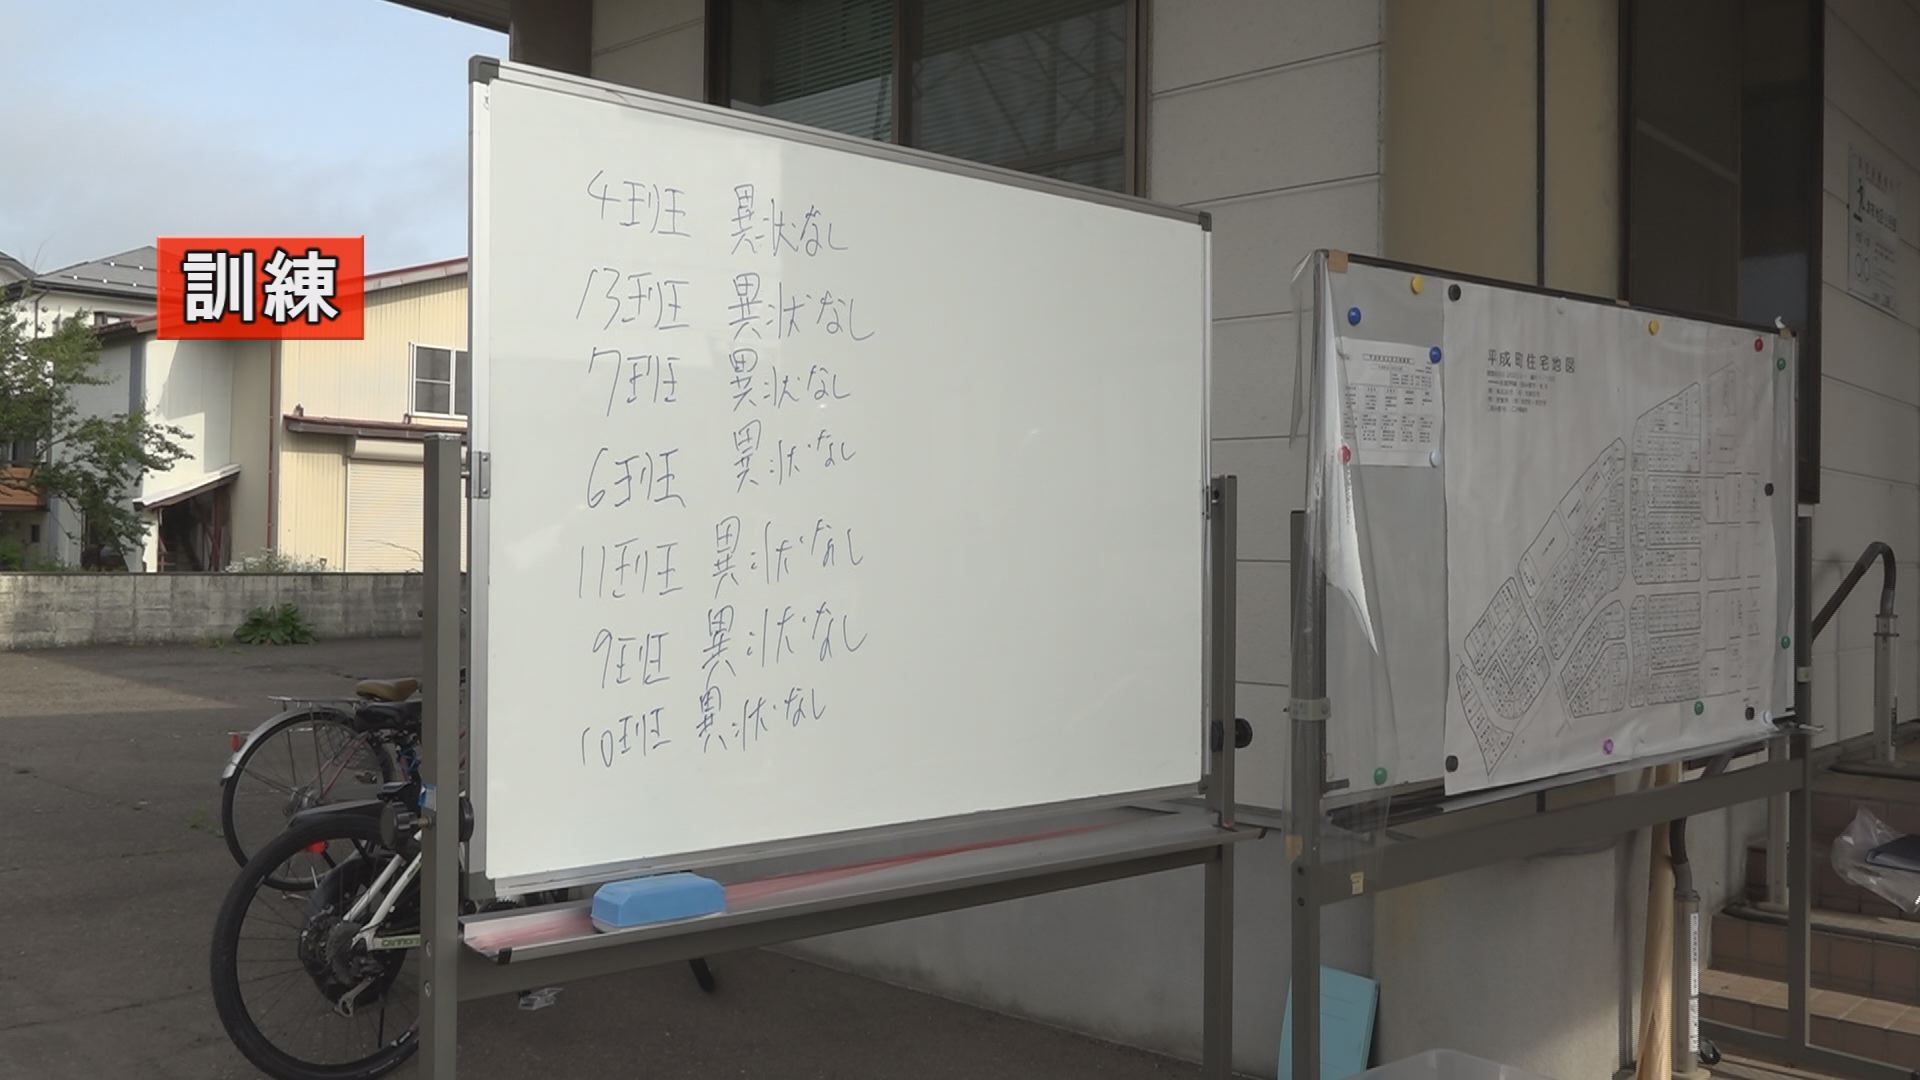 訓練
4班 異状なし
13班 異状なし
7班 異状なし
6班 異状なし
11班 異状なし
9班 異状なし
10班 異状なし
平成町住宅地図